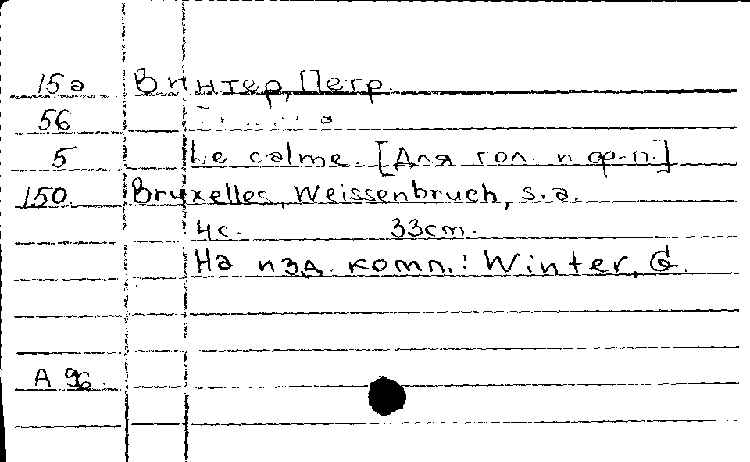 15а Винтер, Петр.
56
5 Le calme. [Для гол. и ф-п.]
150. Bruxelles, Weissenbruch, s.a.
4с. 33cm.
На изд. комп.: Winter, G.
А 96.